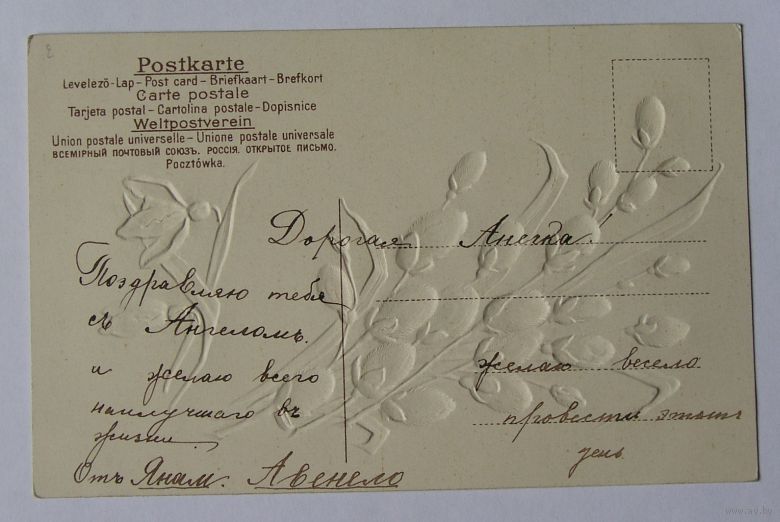 Postkarte
Levelező-Lap – Post card – Briefkaart – Brefkort
Carte postale
Tarjeta postal – Cartolina postale – Dopisnice
Weltpostverein
Union postale universelle – Unione postale universale
ВСЕМІРНЫЙ ПОЧТОВЫЙ СОЮЗЪ. РОССІЯ. ОТКРЫТОЕ ПИСЬМО.
Pocztówka.
Дорогая Анечка!
Поздравляю тебя
съ Ангеломъ.
и желаю всего
наилучшаго въ
жизни.
Отъ Авенело
желаю весело
провести этотъ
день
www.ay.by